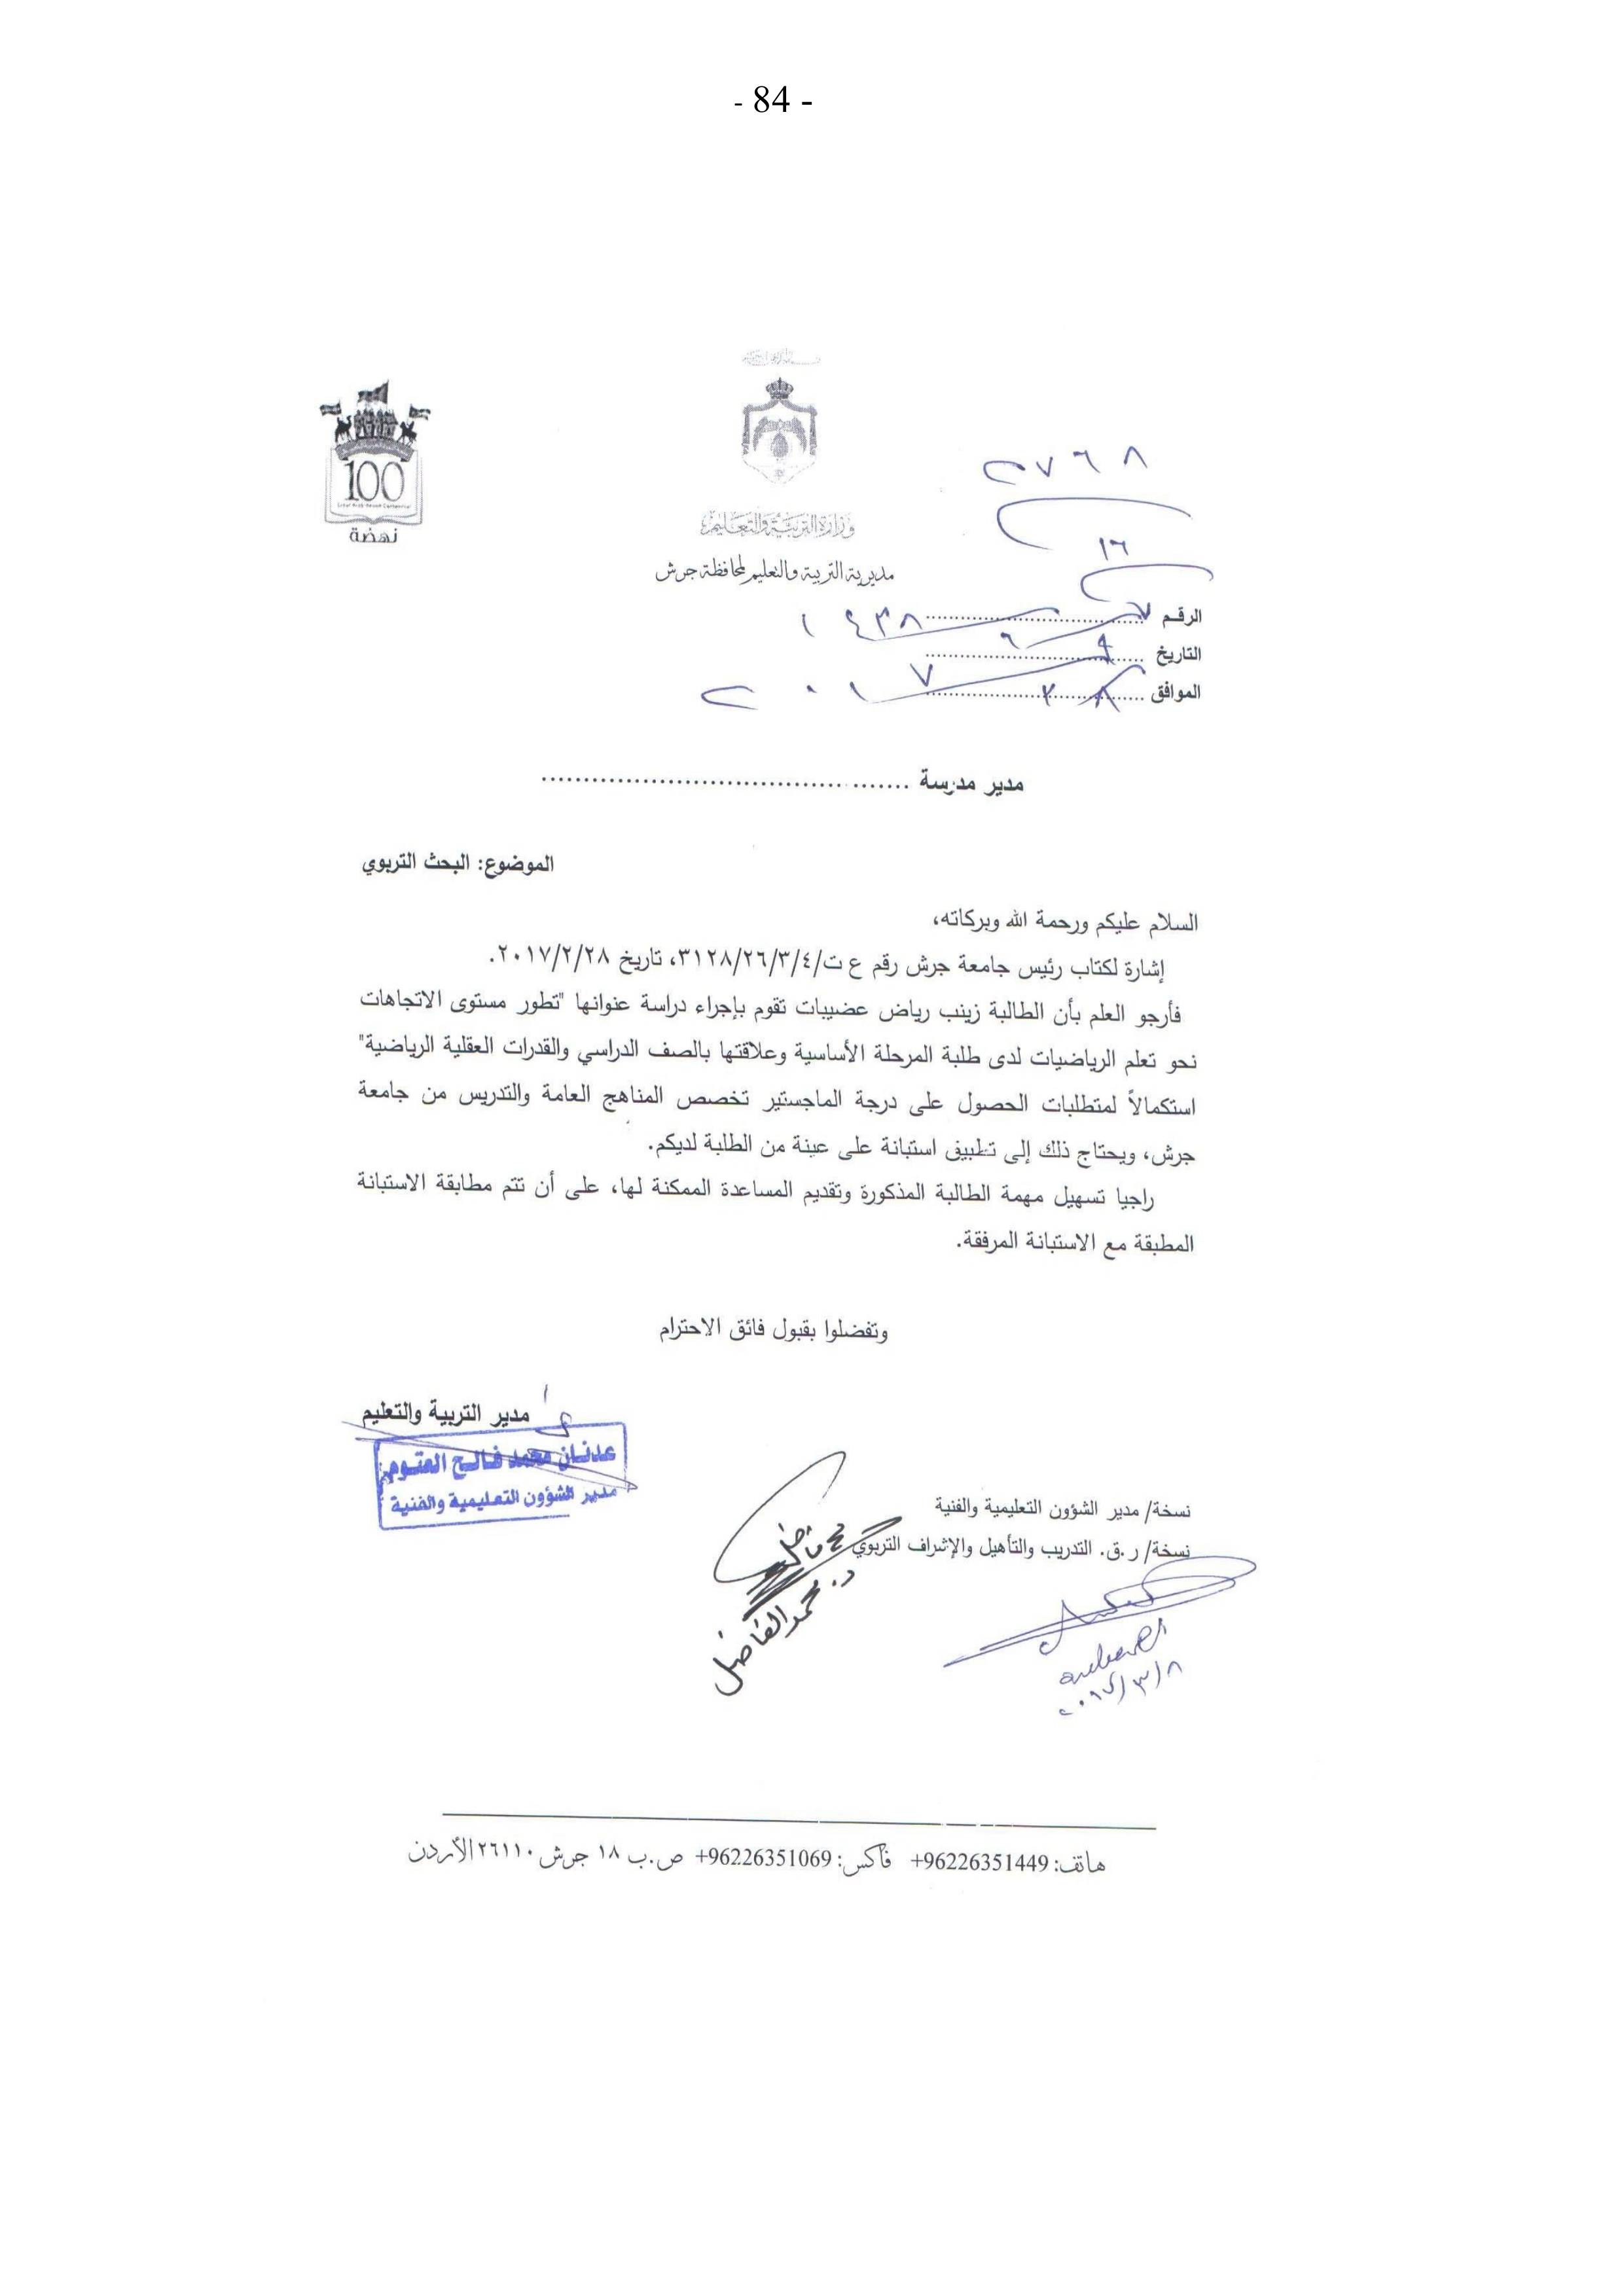 - 84 -
100
نهضة
وزارة التربية والتعليم
مديرية التربية والتعليم لمحافظة جرش
٢٧٦٨
١٦
الرقم ٧
التاريخ ٩ ٦ ١٤٣٨
الموافق ٨ ٢٠١٧
مدير مدرسة ..........................................
الموضوع: البحث التربوي
السلام عليكم ورحمة الله وبركاته،
إشارة لكتاب رئيس جامعة جرش رقم ع ت/٣١٢٨/٢٦/٣/٤، تاريخ ٢٠١٧/٢/٢٨.
فأرجو العلم بأن الطالبة زينب رياض عضيبات تقوم بإجراء دراسة عنوانها "تطور مستوى الاتجاهات
نحو تعلم الرياضيات لدى طلبة المرحلة الأساسية وعلاقتها بالصف الدراسي والقدرات العقلية الرياضية"
استكمالاً لمتطلبات الحصول على درجة الماجستير تخصص المناهج العامة والتدريس من جامعة
جرش، ويحتاج ذلك إلى تطبيق استبانة على عينة من الطلبة لديكم.
راجيا تسهيل مهمة الطالبة المذكورة وتقديم المساعدة الممكنة لها، على أن تتم مطابقة الاستبانة
المطبقة مع الاستبانة المرفقة.
وتفضلوا بقبول فائق الاحترام
مدير التربية والتعليم
عدنان محمد فالح العتوم
مدير الشؤون التعليمية والفنية
نسخة/ مدير الشؤون التعليمية والفنية
نسخة/ ر.ق. التدريب والتأهيل والإشراف التربوي
د. محمد الفاضل
٢٠١٧/٣/٨
هاتف: 96226351449+ فاكس: 96226351069+ ص.ب ١٨ جرش ٢٦١١٠ الأردن